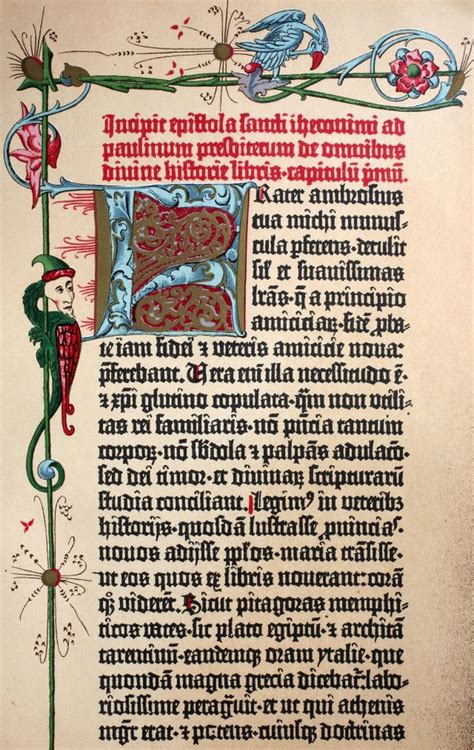 Incipit epistola sancti iheronimi ad
paulinum presbiterum de omnibus
divine historie libris·capitulū pmū.
Frater ambrosius
tua michi munus-
cula ꝑferens·detulit
sil' et suavissimas
lr̄as·q̄ a principio
amiciciaꝝ·fidē ꝓba-
te iam fidei ⁊ veteris amicicie nova:
ꝑferebant. Vera enī illa necessitudo ē·
⁊ xp̄i glutino copulata·qm̄ non utili-
tas rei familiaris·nō pn̄cia tantum
corpoꝝ·nō sb̄dola ⁊ palpās adulacō·
sed dei timor·et divinaꝝ scripturarū
studia conciliant. Legimꝰ in veteribꝫ
historijs·quosdā lustrasse ꝓuīcias·
novos adijsse ppl̄os·maria trāsisse·
ut eos quos ex libris noverant:corā
qꝫ viderēt. Sicut pitagoras memphi-
ticos vates·sic plato egiptū·⁊ architā
tarentinū·eandemqꝫ oram ytalie·que
quondā magna grecia dicebat':labo-
riosissime peragͥvit·et ut qui athenis
mgr̄ erat·⁊ potens·cuiusqꝫ doctrinas